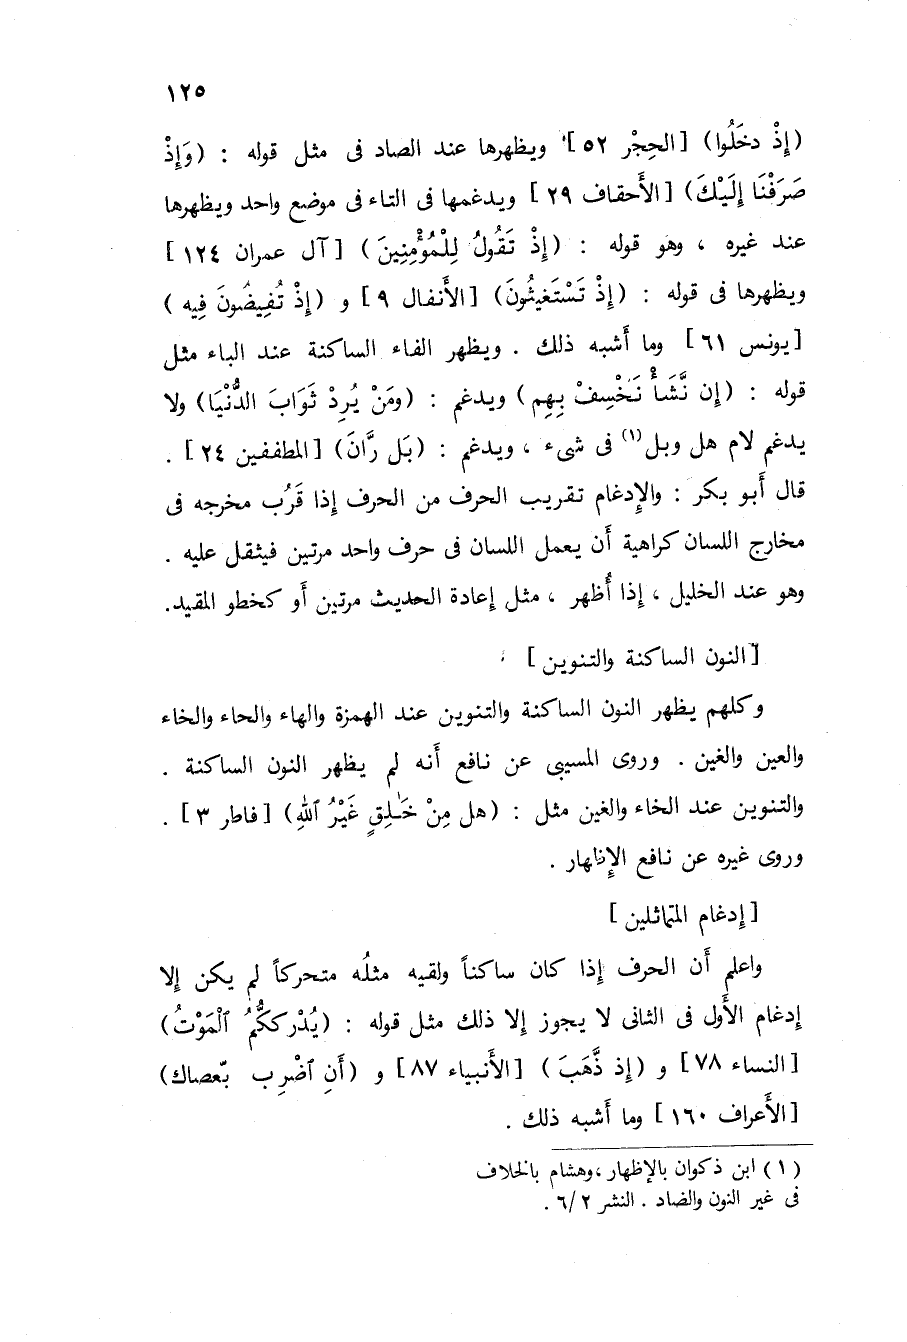 ١٢٥
(إِذْ دخَلُوا) [الحِجْر ٥٢] ويظهرها عند الصاد فى مثل قوله : (وَإِذْ
صَرَفْنَا إِلَيْكَ) [الأَحقاف ٢٩] ويدغمها فى التاء فى موضع واحد ويظهرها
عند غيره ، وهو قوله : (إِذْ تَقُولُ لِلْمُؤْمِنِينَ) [آل عمران ١٢٤]
ويظهرها فى قوله : (إِذْ تَسْتَغيثُونَ) [الأَنفال ٩] و (إِذْ تُفِيضُونَ فِيه)
[يونس ٦١] وما أَشبه ذلك . ويظهر الفاء الساكنة عند الباء مثل
قوله : (إِن نَّشَأْ نَخْسِفْ بِهِم) ويدغم : (ومَنْ يُرِدْ ثَوَابَ الدُّنْيَا) ولا
يدغم لام هل وبل(١) فى شىء ، ويدغم : (بَل رَّانَ) [المطففين ٢٤] .
قال أَبو بكر : والإِدغام تقريب الحرف من الحرف إِذا قَرُب مخرجه فى
مخارج اللسان كراهية أَن يعمل اللسان فى حرف واحد مرتين فيثقل عليه .
وهو عند الخليل ، إِذا أُظهر ، مثل إِعادة الحديث مرتين أَو كخطو المقيد.
[النون الساكنة والتنوين]
وكلهم يظهر النون الساكنة والتنوين عند الهمزة والهاء والحاء والخاء
والعين والغين . وروى المسيبى عن نافع أَنه لم يظهر النون الساكنة .
والتنوين عند الخاء والغين مثل : (هل مِنْ خَـٰلِقٍ غَيْرُ ٱللهِ) [فاطر ٣] .
وروى غيره عن نافع الإِظهار .
[إِدغام المتماثلين]
واعلم أَن الحرف إِذا كان ساكناً ولقيه مثلُه متحركاً لم يكن إِلا
إِدغام الأَول فى الثانى لا يجوز إِلا ذلك مثل قوله : (يُدْرككُّمُ ٱلْمَوْتُ)
[النساء ٧٨] و (إِذ ذَّهَبَ) [الأَنبياء ٨٧] و (أَنِ ٱضْرِب بّعصاك)
[الأَعراف ١٦٠] وما أَشبه ذلك .
(١) ابن ذكوان بالإظهار، وهشام بالخلاف
فى غير النون والضاد . النشر ٦/٢ .